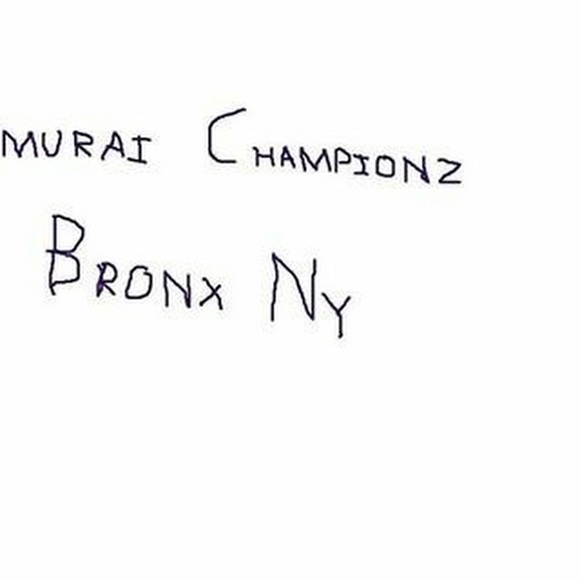 MURAI CHAMPIONZ
BRONX NY